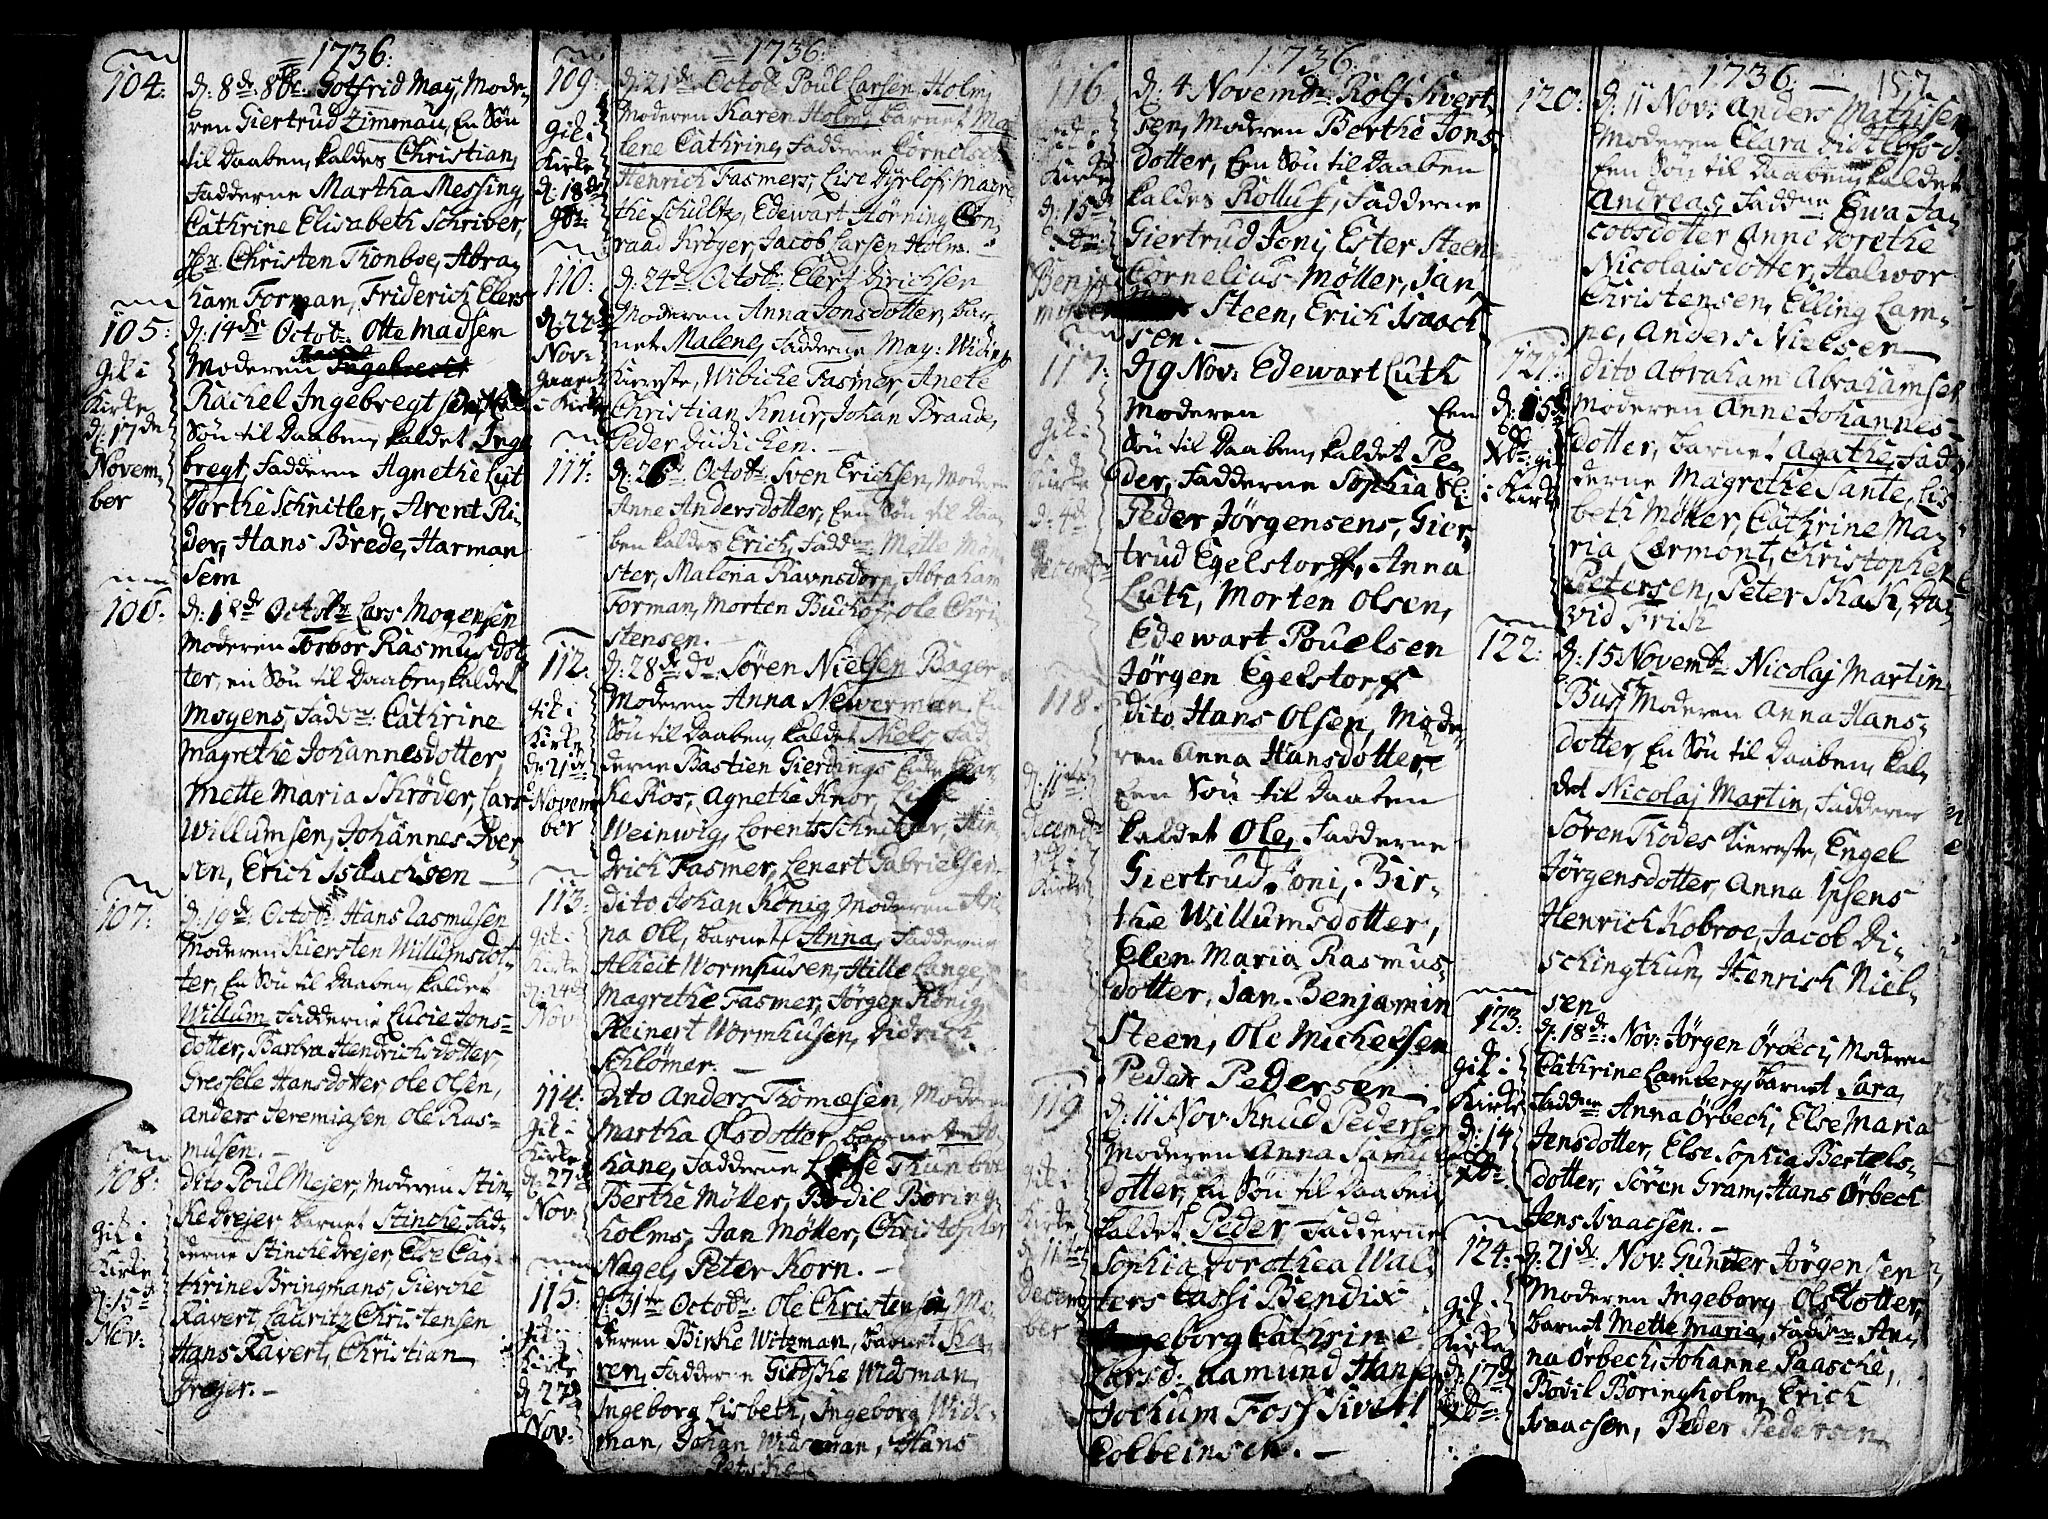 1736.
104.
d: 8de 8br. Gotfrid May, Mode-
ren Giertrud Zimmau, En Søn
til Daaben, kaldes Christian,
Fadderne Martha Messing,
Cathrine Elisabeth Schriver,
Hr. Christen Tronboe, Abra-
ham Forman, Friderich Elers
105:
gik i
Kirke
d. 17de
Novem-
ber
d: 14de Octobr. Otte Madsen
Moderen
Rachel Ingebregtsen,
Søn til Daaben, kaldet Inge
bregt, Fadderne Agnethe Lut
Dorthe Schnitler, Arent Ri-
der, Hans Brede, Harman
Sem
106:
d: 18de Octobr Lars Mogensen
Moderen Torbor Rasmusdot
ter, en Søn til Daaben, kaldet
Mogens, Faddne: Cathrine
Magrethe Johannesdotter
Mette Maria Schrøder, Lars
Willumsen, Johannes Iver-
sen, Erich Isaachsen —
107:
d: 19de Octobr Hans Rasmusen
Moderen Kiersten Willumsdot-
ter, En Søn til Daaben, kaldes
Willum Fadderne Lucie Jons-
dotter, Barbra Hendrichsdotter,
Gresele Hansdotter, Ole Olsen,
Anders Jeremiasen Ole Ras-
musen. —
108:
gik i
Kirke
d: 15de
Nov:
dito Poul Mejer, Moderen Stin-
ke Drejer barnet Stinche Fad-
derne Stinche Drejer, Else Ca-
thrine Bringmans, Gierche
Ravert Lauritz Christensen
Hans Ravert, Christian
Drejer. —
1736.
109:
gik i
Kirke
d: 18de
d: 21de Octobr Poul Larsen Holm,
Moderen Karen Holm, barnet Ma
lene Cathrine, Fadderne Cornelsche
Henrich Fasmers, Lise Dyrlofs, Magre
the Schultz, Edewart Hørning Con
raad Krøger, Jacob Larsen Holm. —
110:
d. 22de
Nov:
i Kirke
d: 24de Octobr. Elert Dirichsen
Moderen Anna Jonsdotter, bar
net Malene, Fadderne May: Widings
Kiereste, Wibiche Fasmer, Anete
Christian Knur, Johan Braade,
Peder Dudichen. —
111:
d: 26de Octobr Sven Erichsen, Moderen
Anne Andersdotter, En Søn til Daa-
ben kaldes Erich, Faddne: Mette Møn
ster, Malena Ravnsdorp, Abraham
Forman, Morten Buchof, Ole Chri
stensen. —
112.
gik i
Kirke
d: 21de
Novem
ber
d: 28de do Søren Nielsen Bager
Moderen Anna Newerman. En
Søn til Daaben, kaldet Niels Fad
derne Bastien Gierdings
Agnethe Knor,
Weinwig, Lorents Schnitler, Hin
drich Fasmer, Lenert Gabrielsen.
113:
gik i
Kirke
d: 24de
Nov
dito Johan Kønig, Moderen An
na Oll, barnet Anna, Fadderne
Alheit Wormhusen, Hille Lange
Magrethe Fasmer, Jørgen Kønig,
Reinert Wormhusen, Didrich
Schlømer. —
114:
gik i
Kirke
d: 27de
Nov:
dito Anders Thomæsen, Moderen
Martha Olsdotter barnet Jo
hane, Fadderne Thunboe
Berthe Møller, Bodil Boring
holms, Jan Møller, Christopher
Nagel, Peter Korn. —
115.
gik i
Kirke
d: 27de
Nov:
d: 31te Octobr: Ole Christensen Mo
deren Birthe Witzman, barnet Ka
ren, Fadderne Gieske Widsman
Ingeborg Lisbeth, Ingeborg Wids-
man, Johan Widsman, Hans
1736.
116.
gik i
Kirke
d: 15de
d: 4 Novembr Rolf Sivert
sen, Moderen Berthe Jons
dotter, Een Søn til Daaben
kaldes Rolluf, Fadderne
Giertrud Joni, Ester Steen
Cornelius Møller, Jan
Steen, Erich Isaach
sen. —
117:
gik i
Kirke
d: 4de
December
d 9 Nov: Edewart Luth
Moderen Een
Søn til Daaben, kaldet Pe-
der, Fadderne Sophia Sl:
Peder Jørgensens, Gier-
trud Egelstorff, Anna
Luth, Morten Olsen,
Edewart Pouelsen
Jørgen Egelstorff
118.
d: 11te
Decembr
gik i
Kirke
dito Hans Olsen, Mode-
ren Anna Hansdotter,
Een Søn til Daaben
kaldet Ole, Fadderne
Giertrud Joni, Bir-
the Willumsdotter,
Elen Maria Rasmus-
dotter, Jan Benjamin
Steen, Ole Michelsen
Peder Pedersen
119
gik i
Kirke
d: 11te
Decem
ber
d: 11 Nov Knud Pedersen
Moderen Anna Samuels
dotter, En Søn til Daaben
kaldet Peder Fadderne
Sophia Dorothea Wal-
ters Cassi Bendix
Ingeborg Cathrine
Larsd: Aamund Hansen
Jochum Foss Sivert
Colbeinsen. —
1736. — 157.
120:
d: 11 Nov: Anders Mathisen
Moderen Clara Didelofsd:
Een Søn til Daaben, kaldet
Andreas, Faddne: Ewa Ja-
cobsdotter Anne Dorethe
Nicolaisdotter, Halwor
Christensen, Elling Lam-
pe, Anders Nielsen
121:
d: 15de
Xbr: gik
i Kirke
dito Abraham Abrahamsen
Moderen Anne Johannes-
dotter, barnet Agathe, Fad-
derne Magrethe Sante, Lis
beth Møller, Cathrine Ma-
ria Lærmont, Christopher
Petersen, Peter Skak, Da-
vid Frich
122:
d: 15 Novembr Nicolaj Martin
Bus, Moderen Anna Hans-
dotter, En Søn til Daaben, kal-
det Nicolaj Martin, Fadderne
Søren Thodes Kiereste, Engel
Jørgensdotter, Anna Ipsens
Henrich Kobroe, Jacob Di-
schingthun, Henrich Niel-
sen
123:
gik i
Kirke
d: 14
Xbr
d: 18de: Nov: Jørgen Örbech, Moderen
Cathrine Lambergs barnet Sara,
Faddne Anna Örbech, Else Maria
Jensdotter, Else Sophia Bertels-
dotter, Søren Gram, Hans Örbech
Jens Isaacsen. —
124:
gik i
Kirke
d: 17de
Xbr:
d: 21de Nov: Gunder Jørgensen
Moderen Ingeborg Olsdotter,
barnet Mette Maria, Faddne An-
na Örbech, Johanne Paasche,
Bodil Boringholm, Erich
Isaacsen, Peder Pedersen